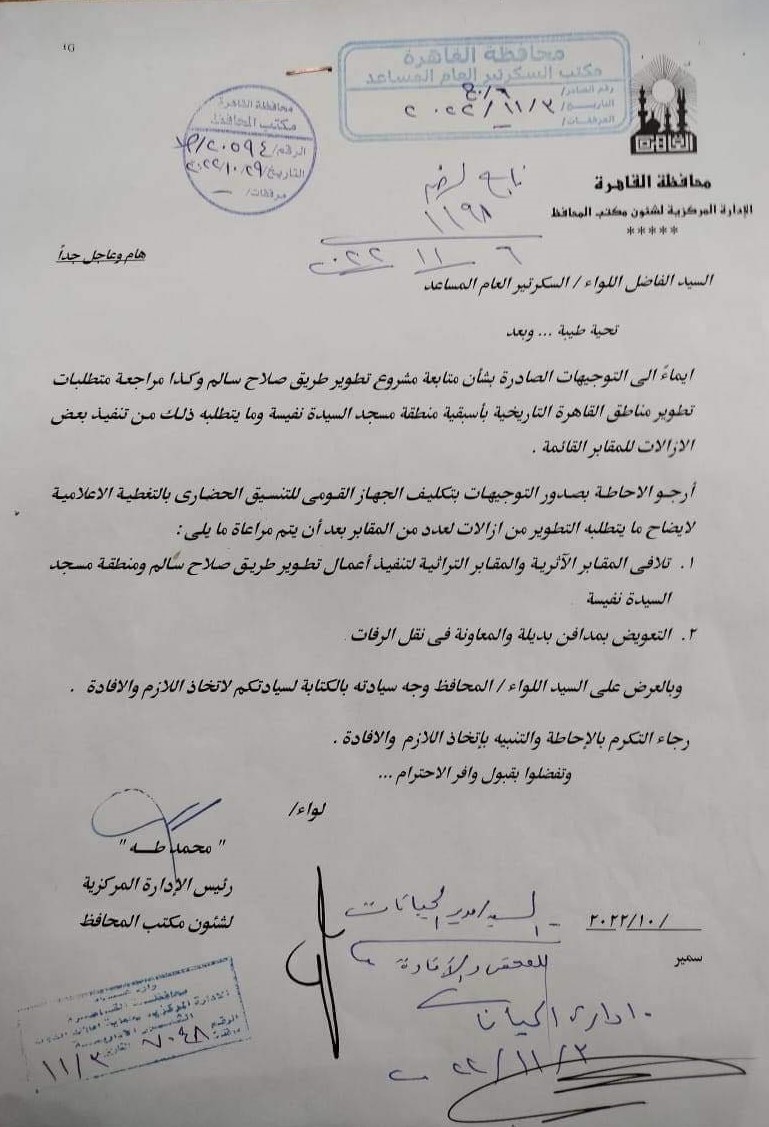 محافظة القاهرة
مكتب السكرتير العام المساعد
رقم الصادر/
التاريخ/ ٢٠٢٢/١١/٣
المرفقات/
محافظة القاهرة
مكتب المحافظ
الرقم/ ٢٠٥٩٤
التاريخ/ ٢٠٢٢/١٠/٢٩
مرفقات/
محافظة القاهرة
الإدارة المركزية لشئون مكتب المحافظ
*****
١١٩٨
٢٠٢٢ / ١١ / ٦
هام وعاجل جداً
السيد الفاضل اللواء / السكرتير العام المساعد
تحية طيبة ... وبعد
ايماءً الى التوجيهات الصادرة بشأن متابعة مشروع تطوير طريق صلاح سالم وكذا مراجعة متطلبات
تطوير مناطق القاهرة التاريخية بأسبقية منطقة مسجد السيدة نفيسة وما يتطلبه ذلك من تنفيذ بعض
الازالات للمقابر القائمة .
أرجو الاحاطة بصدور التوجيهات بتكليف الجهاز القومى للتنسيق الحضارى بالتغطية الاعلامية
لايضاح ما يتطلبه التطوير من ازالات لعدد من المقابر بعد أن يتم مراعاة ما يلى :
١. تلافى المقابر الآثرية والمقابر التراثية لتنفيذ أعمال تطوير طريق صلاح سالم ومنطقة مسجد
السيدة نفيسة
٢. التعويض بمدافن بديلة والمعاونة فى نقل الرفات
وبالعرض على السيد اللواء / المحافظ وجه سيادته بالكتابة لسيادتكم لاتخاذ اللازم والافادة .
رجاء التكرم بالإحاطة والتنبيه بإتخاذ اللازم والافادة .
وتفضلوا بقبول وافر الاحترام ...
لواء/
" محمد طـــه "
رئيس الإدارة المركزية
لشئون مكتب المحافظ
/ ٢٠٢٢/١٠
سمير
السيد/ مدير الجبانات
للفحص والإفادة
٢٠٢٢/١١/٣
محافظة القاهرة
الرقم ٧٠٤٨
١١/٣